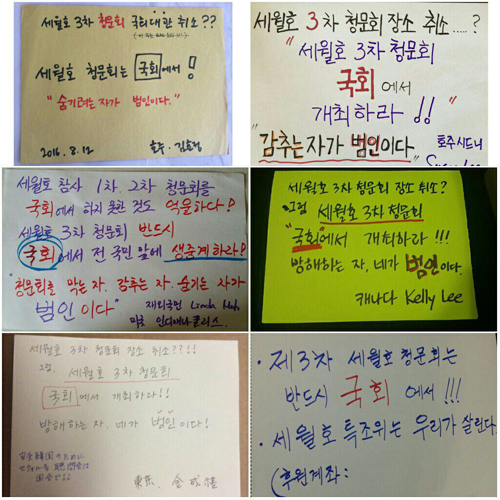 세월호 3차 청문회 국회대관 취소??
세월호 청문회는 국회에서!
"숨기려는자가 범인이다."
2016. 8. 12
호주.
세월호 3차 청문회 장소 취소....?
"세월호 3차 청문회
국회에서
개최하라!!"
"감추는자가 범인이다."
호주시드니
세월호 참사 1차. 2차 청문회를
국회에서 하지 못한 것도 억울하다!
세월호 3차 청문회 반드시
국회에서 전 국민 앞에 생중계하라!
"청문회를 막는 자. 감추는 자. 숨기는 자가
범인이다"
재외국민 Linda
미국 인디애나폴리스.
세월호 3차 청문회 장소 취소?
그럼 세월호 3차 청문회
"국회에서 개최하라!!!
방해하는 자, 네가 범인이다.
캐나다 Kelly Lee
세월호 3차 청문회 장소 취소??!!
그럼, 세월호 3차 청문회
국회에서 개최하라!!
방해하는 자, 네가 범인이다!
安全韓国のために
セウォル号 聴聞会は
国会で!!
東京. 金
• 제3차 세월호 청문회는
반드시 국회에서!!!
• 세월호 특조위는 우리가 살린다.
(후원계좌: